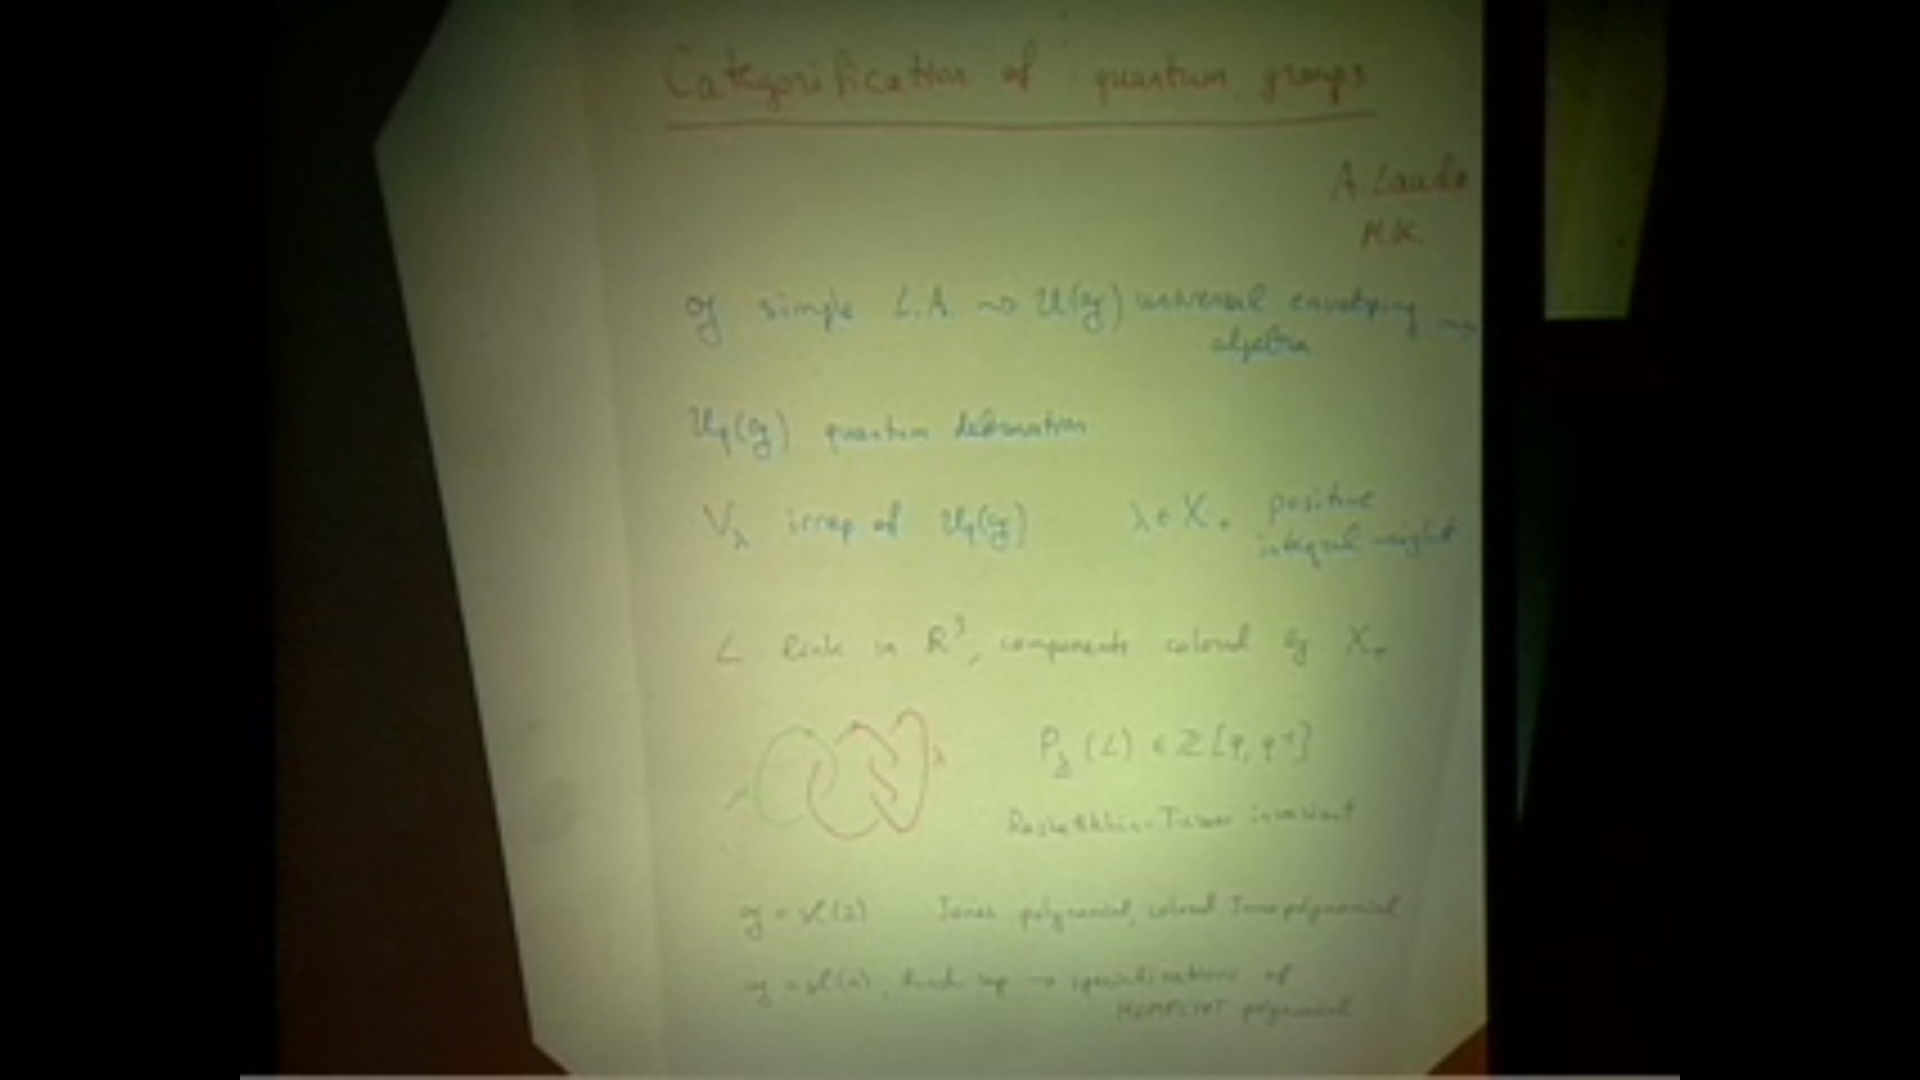 Categorification of quantum groups
A. Lauda
M.K.
𝔤 simple L.A. ⇝ U(𝔤) universal enveloping ⇝
algebra
U_q(𝔤) quantum deformation
V_λ irrep of U_q(𝔤) λ ∈ X₊ positive
integral weight
L link in R³, components colored by X₊
μ λ P_λ(L) ∈ ℤ[q, q⁻¹]
Reshetikhin-Turaev invariant
𝔤 = sl(2) Jones polynomial, colored Jones polynomial
𝔤 = sl(n), fund rep → specializations of
HOMFLYPT polynomial